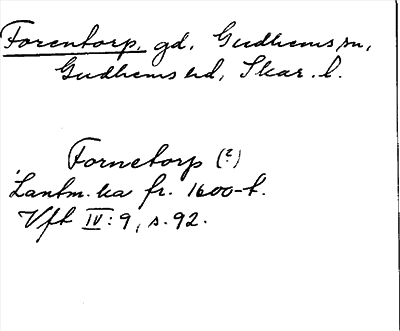 Forentorp, gd, Gudhems sn,
Gudhems hd, Skar. l.
Fornetorp (?)
Lantm. ka fr. 1600-t.
Vft IV:9, s. 92.